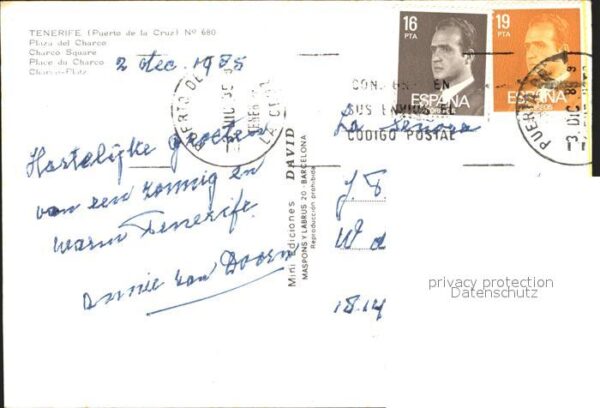 TENERIFE (Puerto de la Cruz) Nº 680
Plaza del Charco
Charco Square
Place du Charco
Charco-Platz
2 dec. 1985
Hartelijke groeten
van een zonnig en
warm Tenerife
Annie van Doorn
Mini Ediciones DAVID
MASPONS Y LABRUS 20 - BARCELONA
Reproducción prohibida
16
PTA
ESPAÑA
19
PTA
ESPAÑA
EN
SUS ENVIOS EL
CODIGO POSTAL
PUERTO DE
LA CRUZ
3 DIC 85
La Senora
J. F.
W d
18.14
privacy protection
Datenschutz